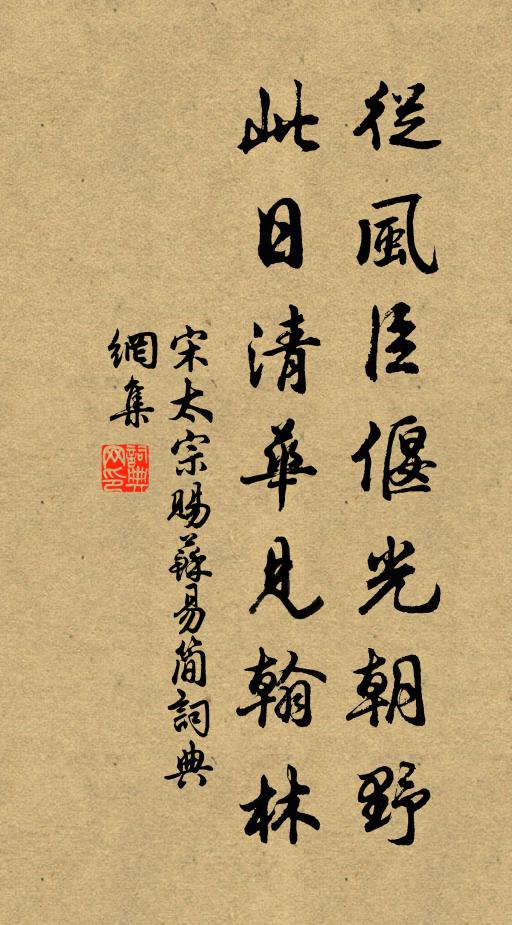 從風臣偃光朝野
此日清華見翰林
宋太宗賜蘇易簡詞典
網集
詞典
网印